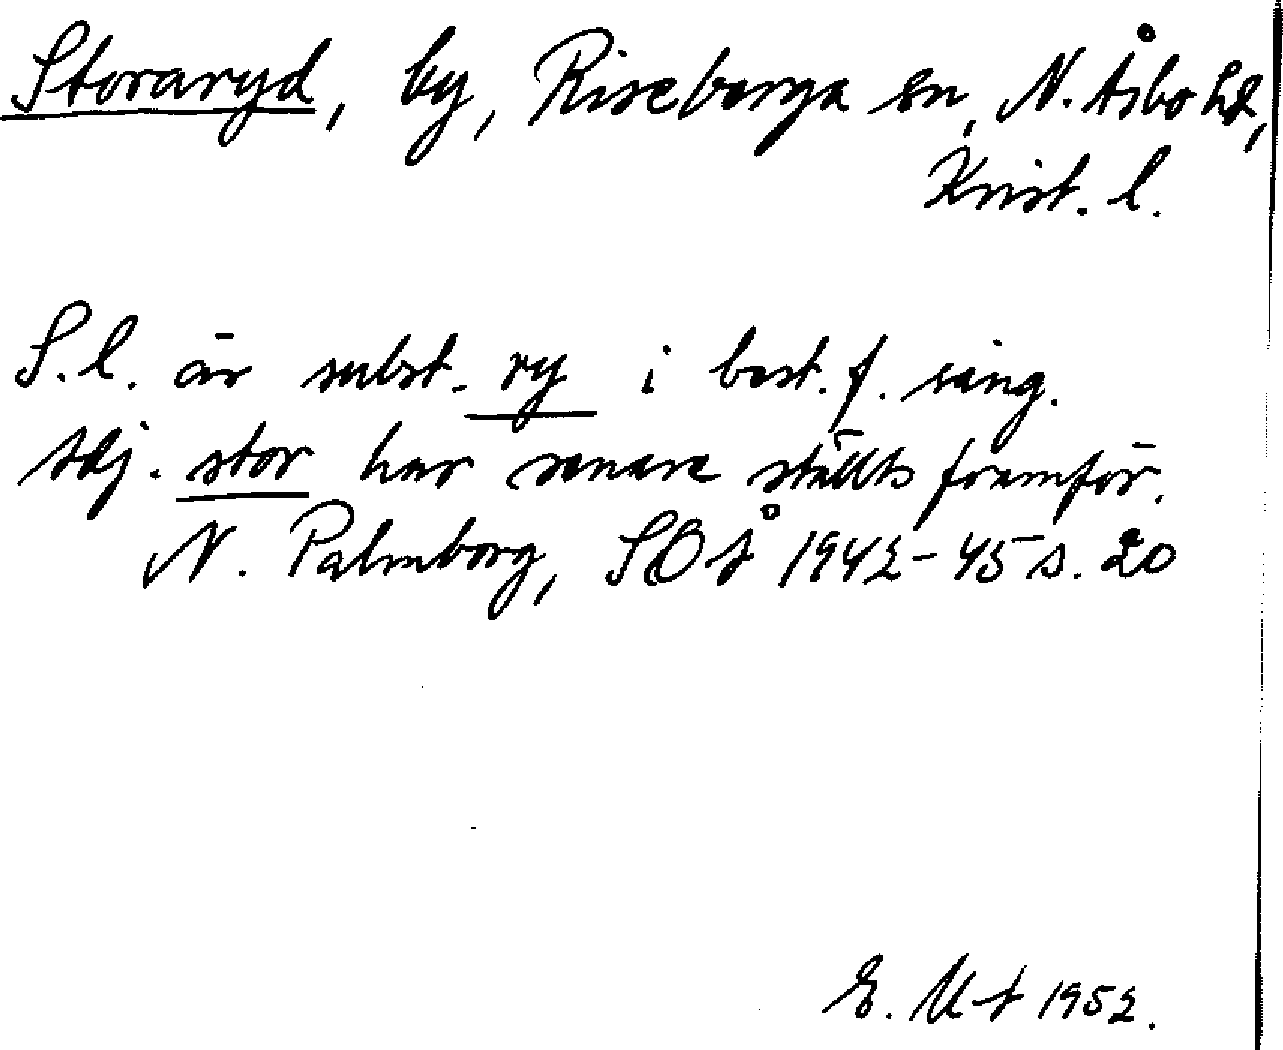 Storaryd, by, Riseberga sn, N. Åsbo hd,
Krist. l.
S.l. är subst. ry i best. f. sing.
Adj. stor har senare ställts framför.
N. Palmborg, SOÅ 1942-45 s. 20
E. 1952.